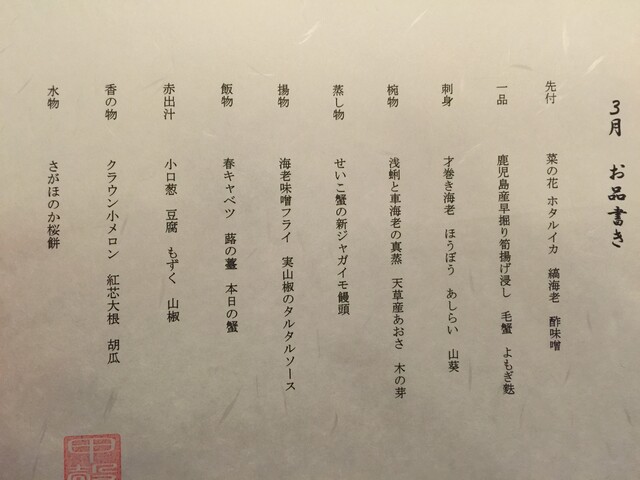 3月 お品書き
先付 菜の花 ホタルイカ 縞海老 酢味噌
一品 鹿児島産早掘り筍揚げ浸し 毛蟹 よもぎ麩
刺身 才巻き海老 ほうぼう あしらい 山葵
椀物 浅蜊と車海老の真蒸 天草産あおさ 木の芽
蒸し物 せいこ蟹の新ジャガイモ饅頭
揚物 海老味噌フライ 実山椒のタルタルソース
飯物 春キャベツ 蕗の薹 本日の蟹
赤出汁 小口葱 豆腐 もずく 山椒
香の物 クラウン小メロン 紅芯大根 胡瓜
水物 さがほのか桜餅